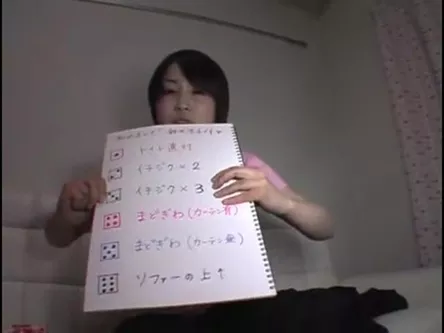 トイレ直行
イチジク×2
イチジク×3
まどぎわ(カーテン有)
まどぎわ(カーテン無)
ソファーの上!